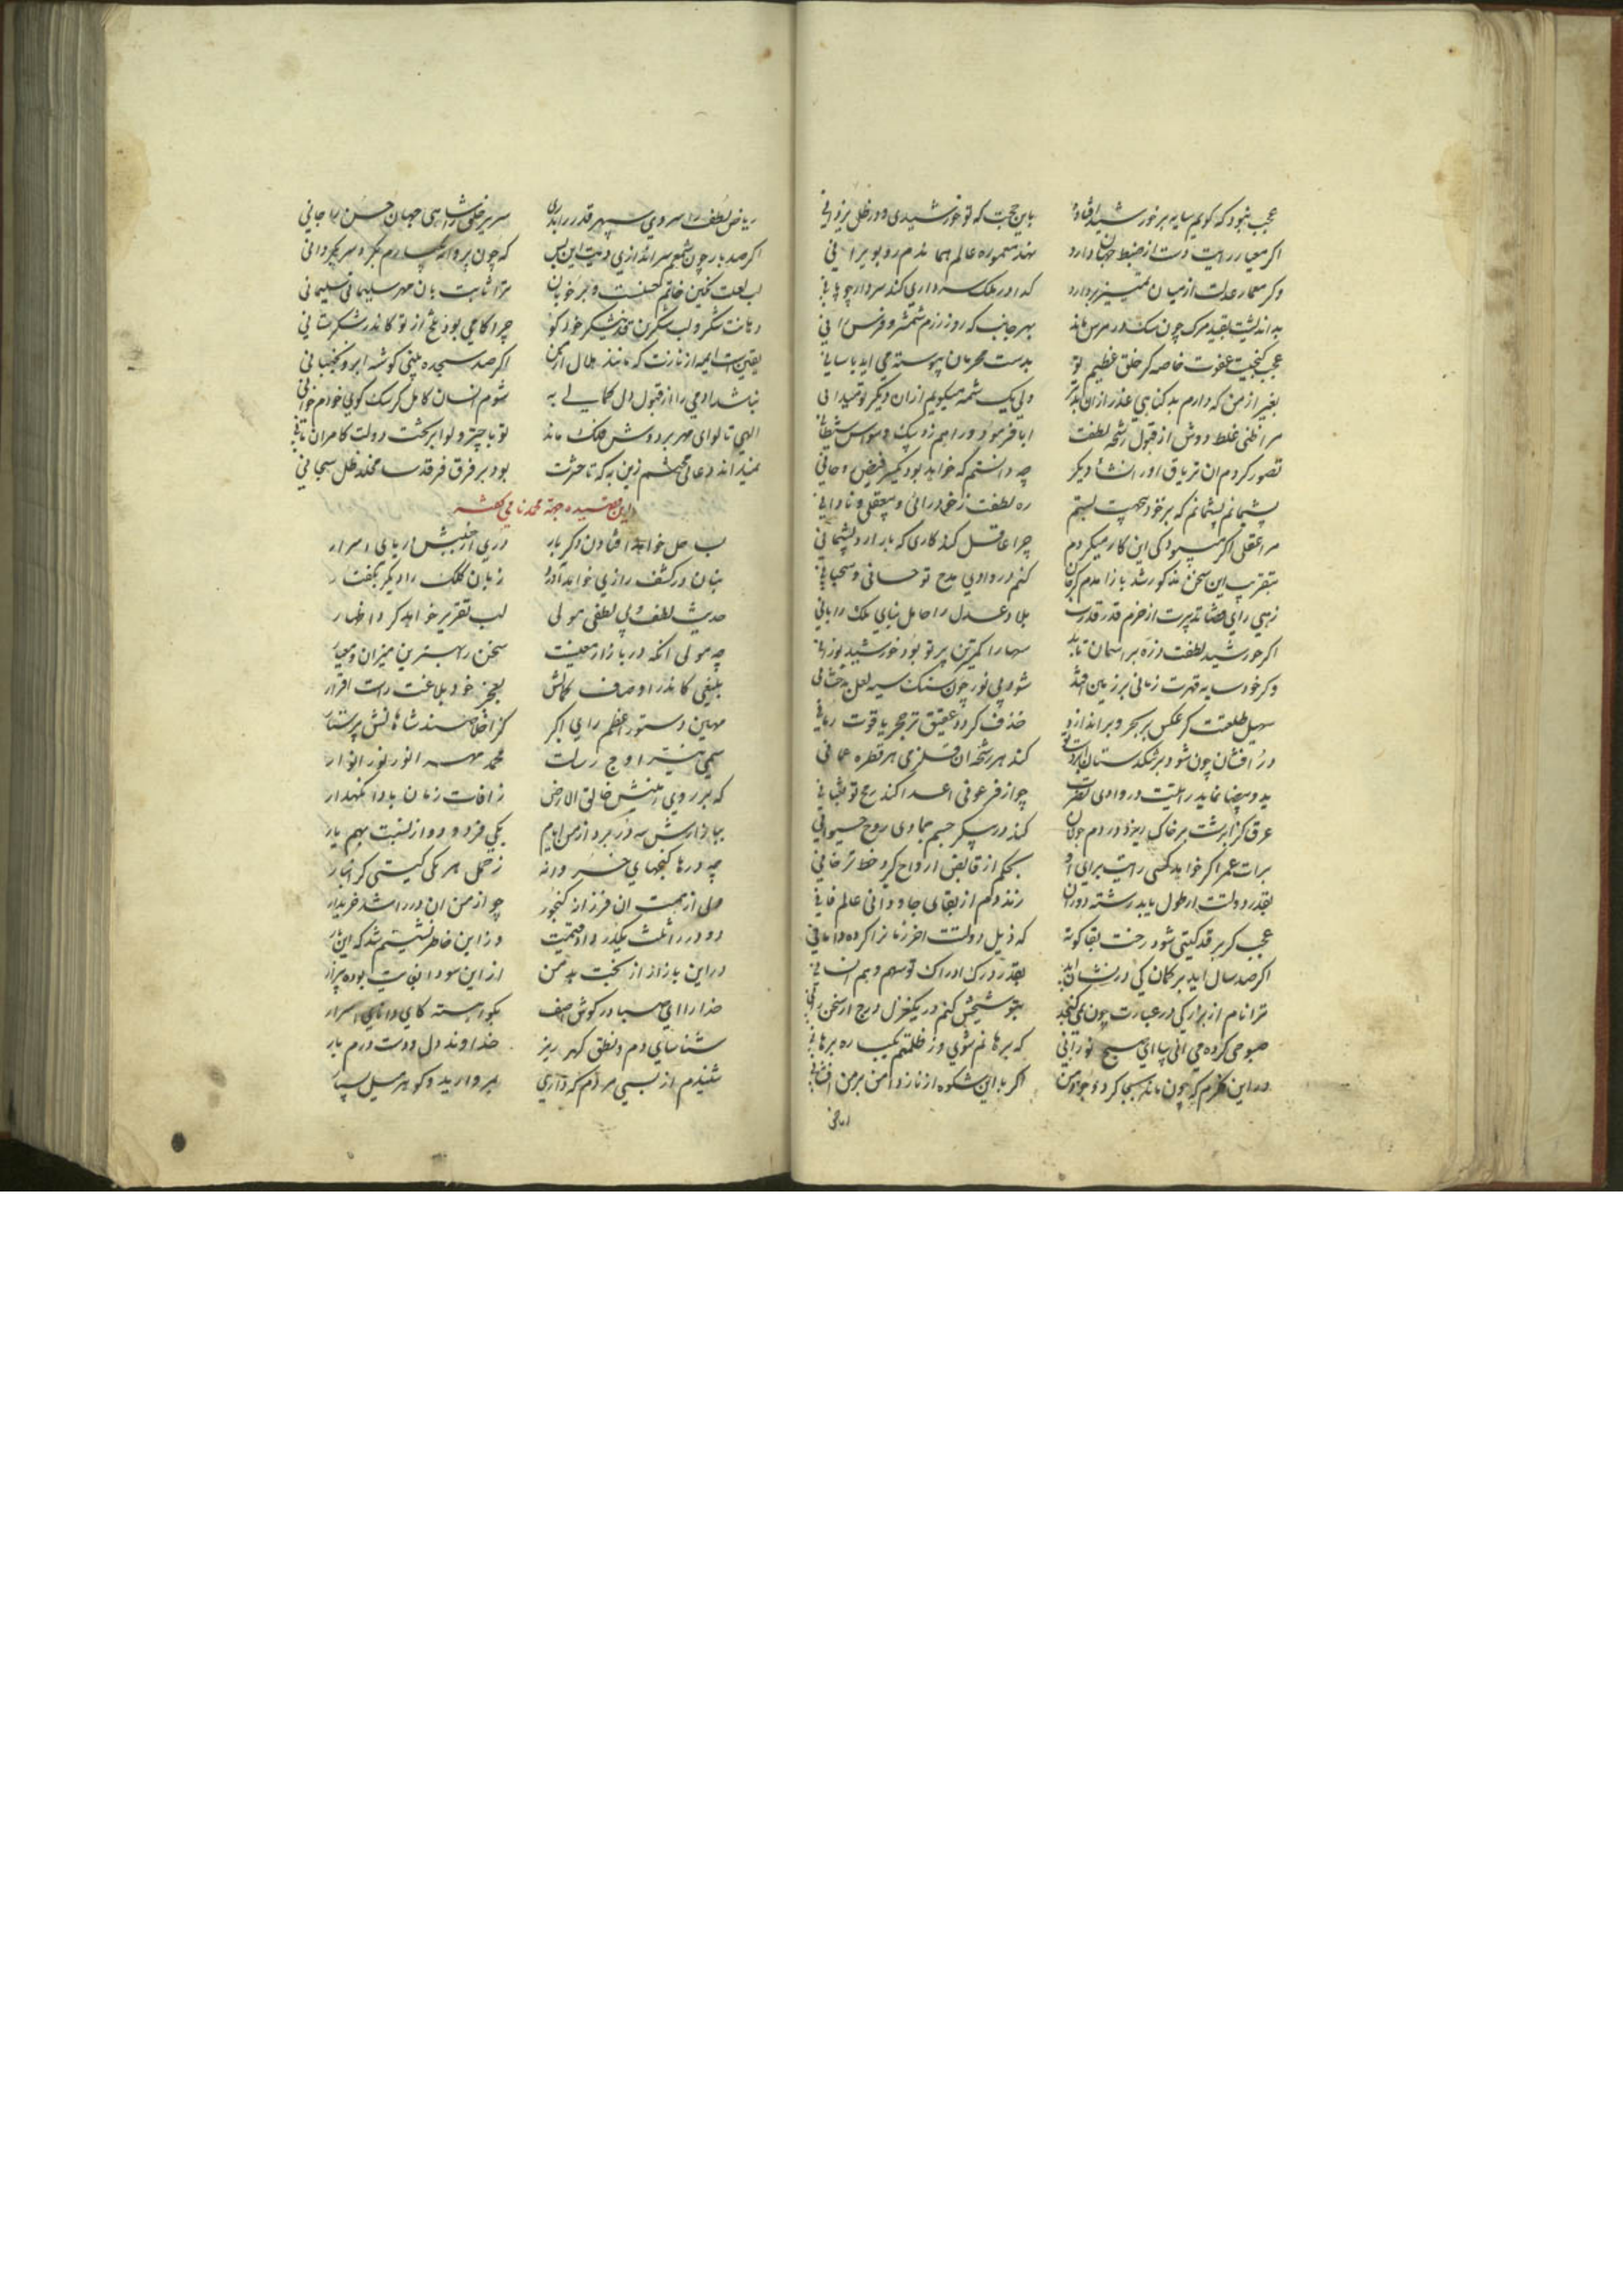 عجب نبود که کویم سایه بر خورشید افتاده باین حجت که تو خورشیدی و در ظل یزدانی
اکر معمار رایت دست از ضبط جهان دارد نهد معموره عالم همان دم رو بویرانی
وکر معمار عدلت از میان تمییز بردارد کدا در ملک سرداری کند سردار چوپانی
بد اندیشت بقید مرک چون سک در مرس ماند بهر جانب که روز رزم شمشیر و فرس رانی
عجب کنجیست عفوت خاصه کز خلق عظیم تو بدست مجرمان پیوسته می اید باسانی
بغیر از من که دارم بد کناهی عذر ازان بدتر ولی یک شمه میکویم ازان دیکر تو میدانی
مرا ظنی غلط دوش از قبول رشحه لطفت ابا فرمود و راهم زد پیک وسواس شیطانی
تصور کردم ان تریاق اور انشاء دیکر چه دانستم که خواهد بود فیض
پشیمانم پشیمانم که بر خود بی جهت بستم ره لطفت ز خود رائی و بیعقلی و نادانی
مرا عقلی اکر میبود کی این کار میکردم چرا عاقل کند کاری که بار ارد پشیمانی
بتقریب این سخن مذکور شد باز امدم کز جان کنم در وادی مدح تو حسانی و سحبانی
زهی رای قضا تدبیرت از حزم قدر قدرت بلاد عدل را حامل بنای ملک را بانی
اکر خورشید لطفت ذره بر اسمان تابد سها را کمترین پرتو بود خورشید نورانی
وکر خود سایه قهرت زمانی بر زمین افتد شود بی نور چون سنک سیه لعل بدخشانی
سهیل طلعتت کر عکس بر بحر و بر اندازد خذف کردد عقیق تر حجر یاقوت رمانی
در افشان چون شود بر خشکدستان ابر دست تو کند هر رشحه ان قلزمی هر قطره عمانی
ید و بیضا نماید رایتت در وادی نصرت چو از فرعونی اعدا کند رمح تو ثعبانی
عرق کز ابرشت بر خاک ریزد در دم جولان کند در پیکر جسم جمادی روح حیوانی
برات عمر اکر خواهد کسی رایت برای او بحکم از قابض ارواح کیرد خط ترخانی
بقدر دولتت ار طول یابد رشته دوران زند دم از بقای جاودانی عالم فانی
عجب کر بر قد کیتی شود رخت بقا کوته که ذیل دولتت اخر زمانرا کرده دامانی
اکر صد سال اید بر کمان کی در نشان اید بقدر درک ادراک تو سهم وهم انسانی
ترا نام از بزرکی در عبارت چون نمی کنجد بتو شیخش کنم در یکغزل درج از سخن رانی
صبوحی کرده می ائی بیا ای صبح نورانی که برهانم شوی وز ظلمتم یکباره برهانی
در این فکرم که چون ماند بسجا کرد وجود من اکر با این شکوه از ناز دامن بر من افشانی
ریاض
ریاض لطف را سروی سپهر قدر را بدری سریر خلق را شاهی جهان حسن را جانی
اکر صد بار چون شمعم سر اندازی دیت این بس که چون پروانه یکبارم بکرد سر بکردانی
لب لعلت نکین خاتم حسنست و بر خوبان ترا ثابت بان مهر سلیمانی سلیمانی
دهانت شکر و لب شکرین خندیت شکر خود کو چرا کامی بود تلخ از تو کاندر شکرستانی
یقین است اینهمه از نازت که مانند هلال از من اکر صد سجده بینی کوشه ابرو نجنبانی
نباشد ادمی را از قبول دل کمالی به شوم انسان کامل کر سک کوی خودم خوانی
الهی تا لوای مهر بر دوش فلک ماند تو با چتر و لوا بر تخت دولت کامران مانی
نمیداند دعائی محتشم زین به که تا حشرت بود بر فرق فرقدسا مخلد ظل سبحانی
این قصیده جهة محمد نامی کفته
لب حل خواهد افتادن دکر بار دری از جنبش دریای اسرار
بنان در کشف رازی خواهد اورد زبان کلک را دیکر بکفتار
حدیث لطف بی لطفی مولی لب تقریر خواهد کرد اظهار
چه مولی انکه در بازار معنیست سخن را بهترین میزان و معیار
بلیغی کاندر اوصاف کمالش بعجز خود بلاغت راست اقرار
مهین دستور اعظم رای اکبر کز اخلاصند شاهانش پرستار
سمی نیر اوج رسالت محمد مهر انور نور انوار
که بر روی زمینش خالق الارض ز افات زمان بادا نکهدار
ببازارش سه در برد از من ایام یکی فرد و دو از نسبت بهم یار
چه درها کنجهای خسرو ورنه ز حمل هر یکی کیتی کرانبار
ولی از همت ان فرزانه کنجور چو از من ان درر را شد خریدار
دو در را ثلث یکدر داد قیمت وز این خاطر نشینم شد که این بار
در این بازار از بخت بد من از این سودا بغایت بوده بیزار
خدارا ای صبا در کوش اصف بکو اهسته کای دانای اسرار
شناسای دم و نطق کهر ریز خداوند دل و دست درم بار
شنیدم از بسی مردم که داری بمروارید و کوهر میل بسیار